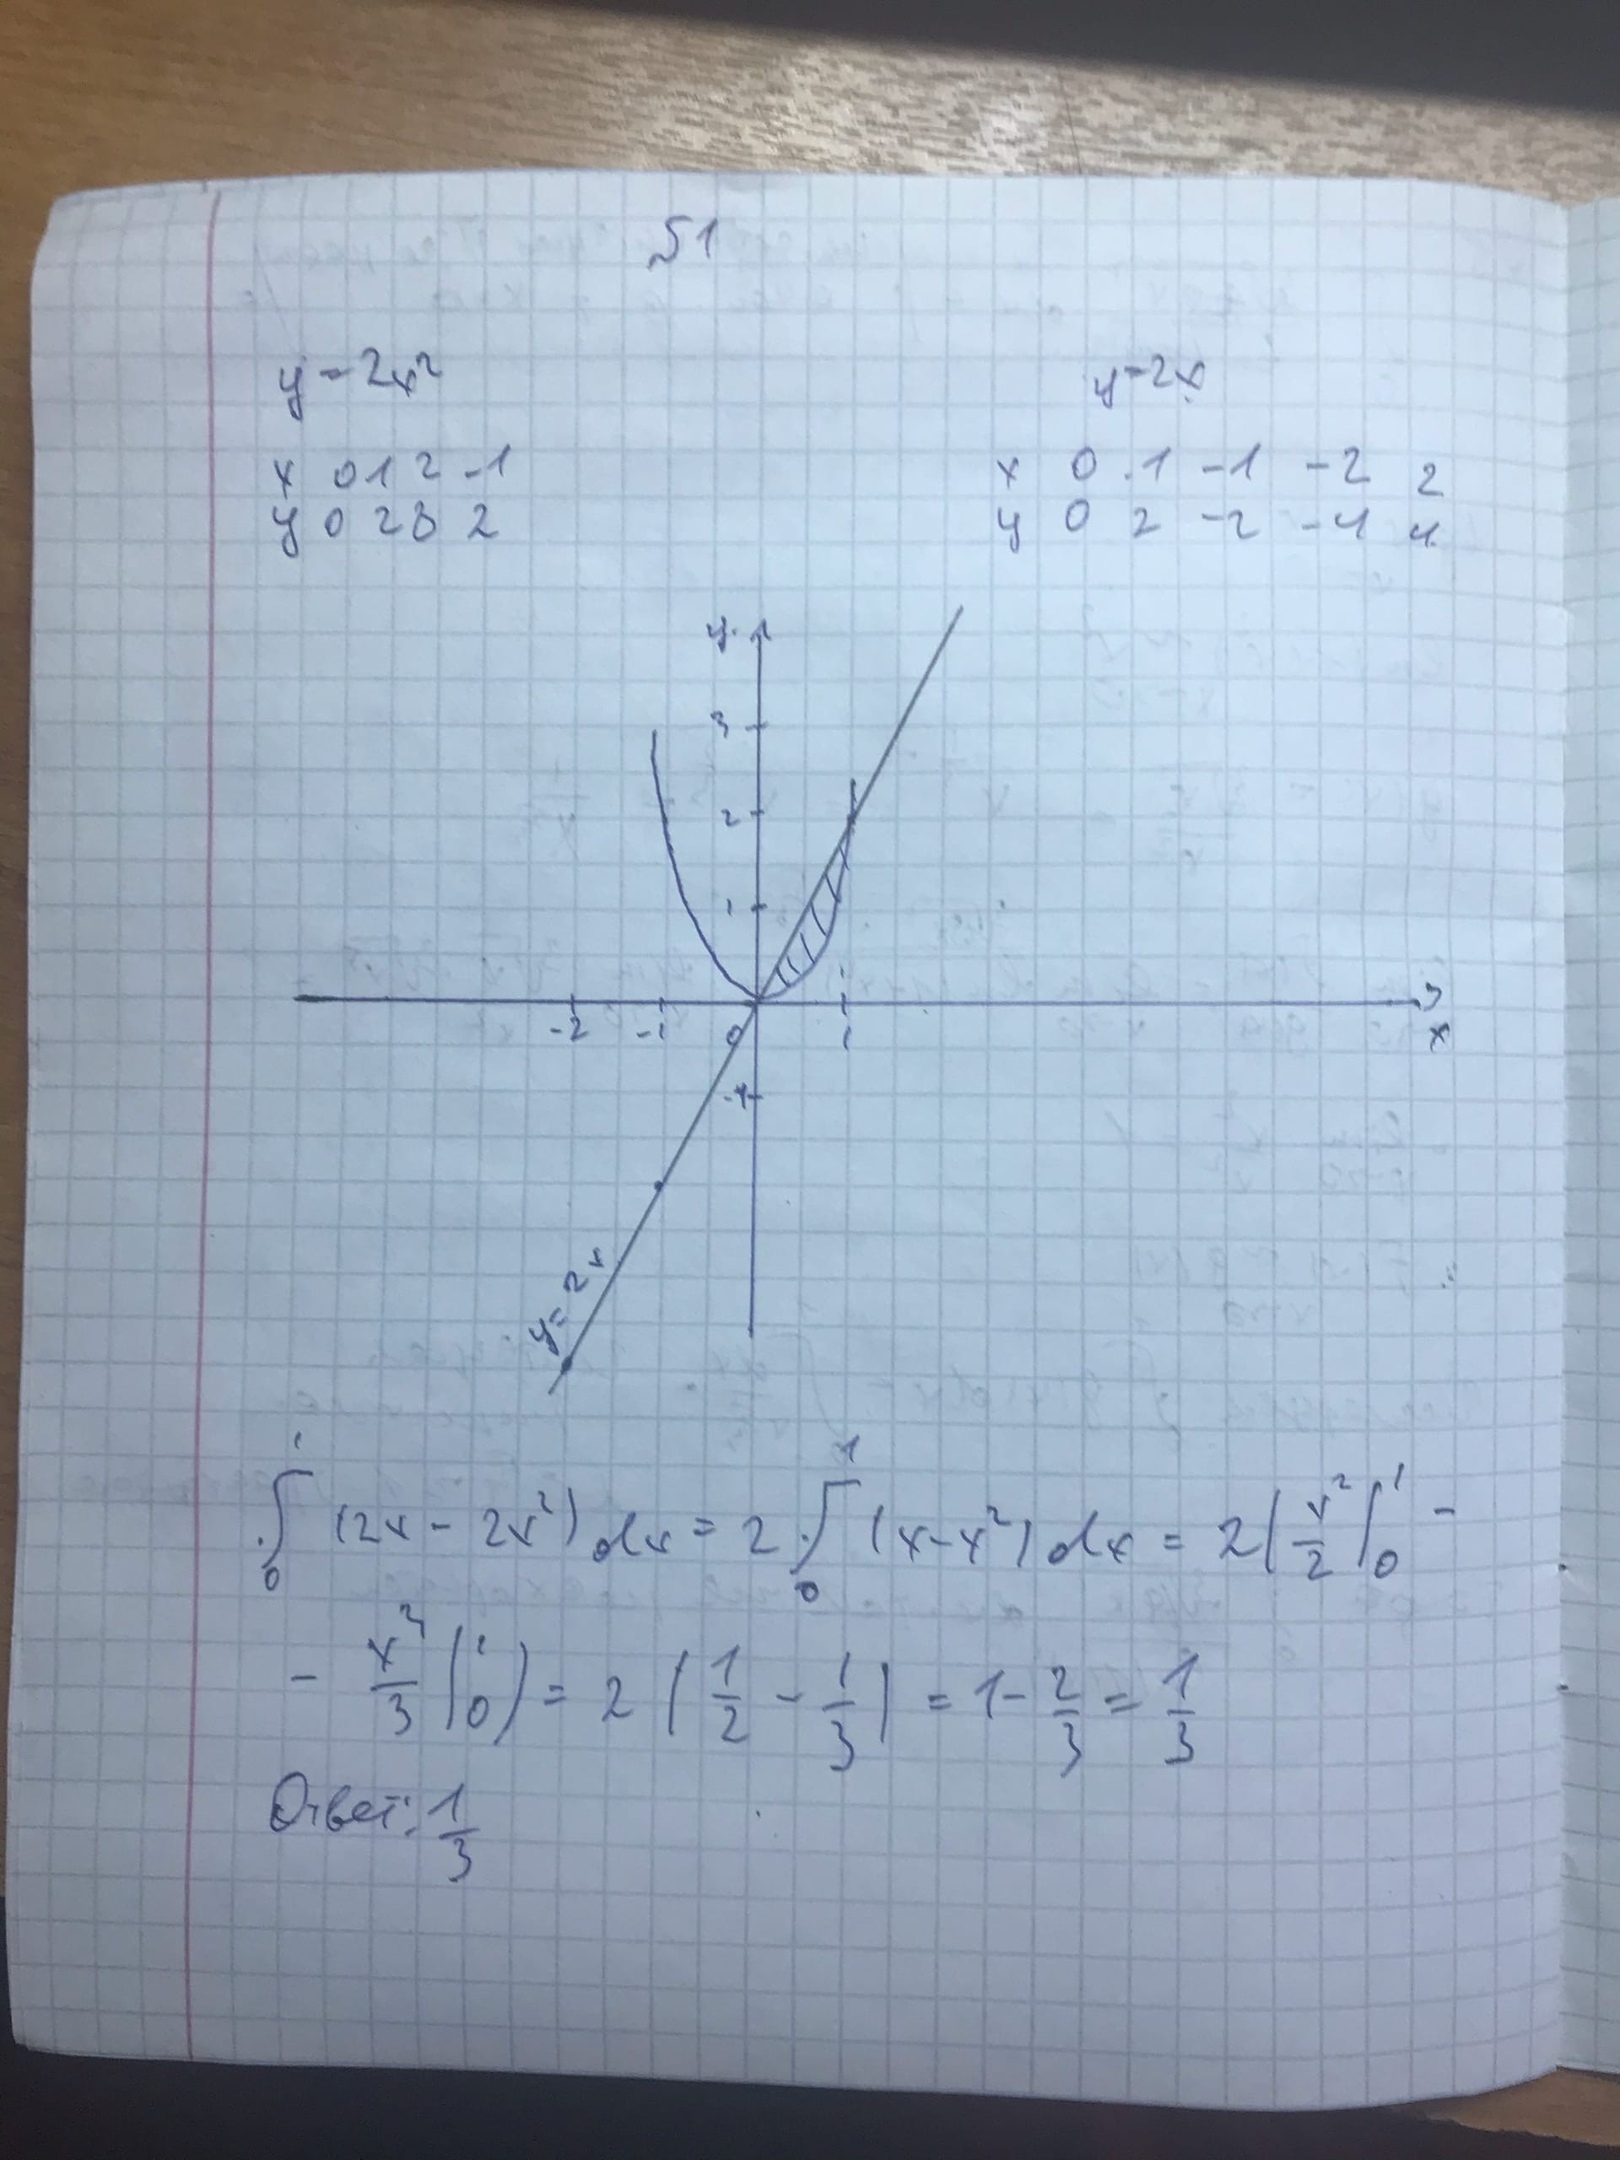 №1
y = 2x²
y = 2x
x 0 1 2 -1
y 0 2 8 2
x 0 1 -1 -2 2
y 0 2 -2 -4 4
y
3
2
1
-2 -1 0 1 x
-1
y = 2x
∫₀¹ (2x - 2x²) dx = 2 ∫₀¹ (x - x²) dx = 2 (x²/2 |₀¹ -
- x³/3 |₀¹) = 2 (1/2 - 1/3) = 1 - 2/3 = 1/3
Ответ: 1/3